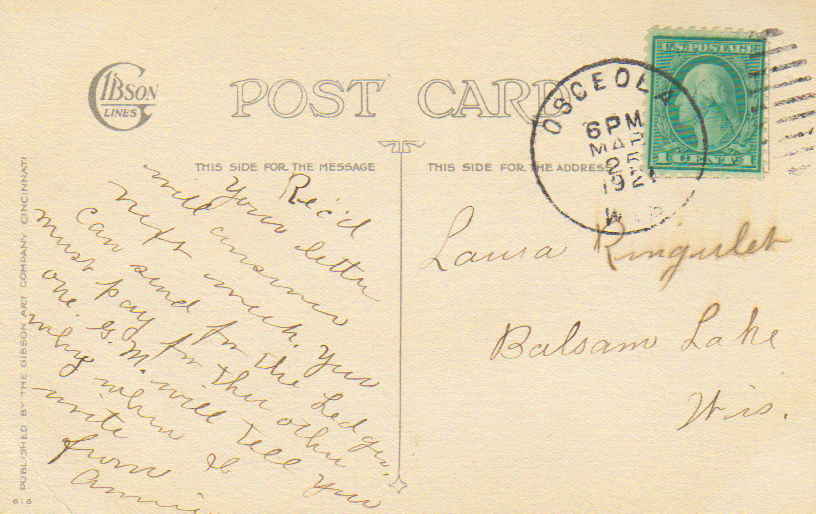 GIBSON
LINES
POST CARD
THIS SIDE FOR THE MESSAGE
THIS SIDE FOR THE ADDRESS
U.S. POSTAGE
1 CENT 1
OSCEOLA
6 PM
MAR
25
1921
WIS
Rec'd
Your letter
will answer
next week. You
can send for the Ledger
must pay for the other
one. G. M. will tell you
why when I
write
from
Annie
Laura Ringulet
Balsam Lake
Wis.
PUBLISHED BY THE GIBSON ART COMPANY CINCINNATI